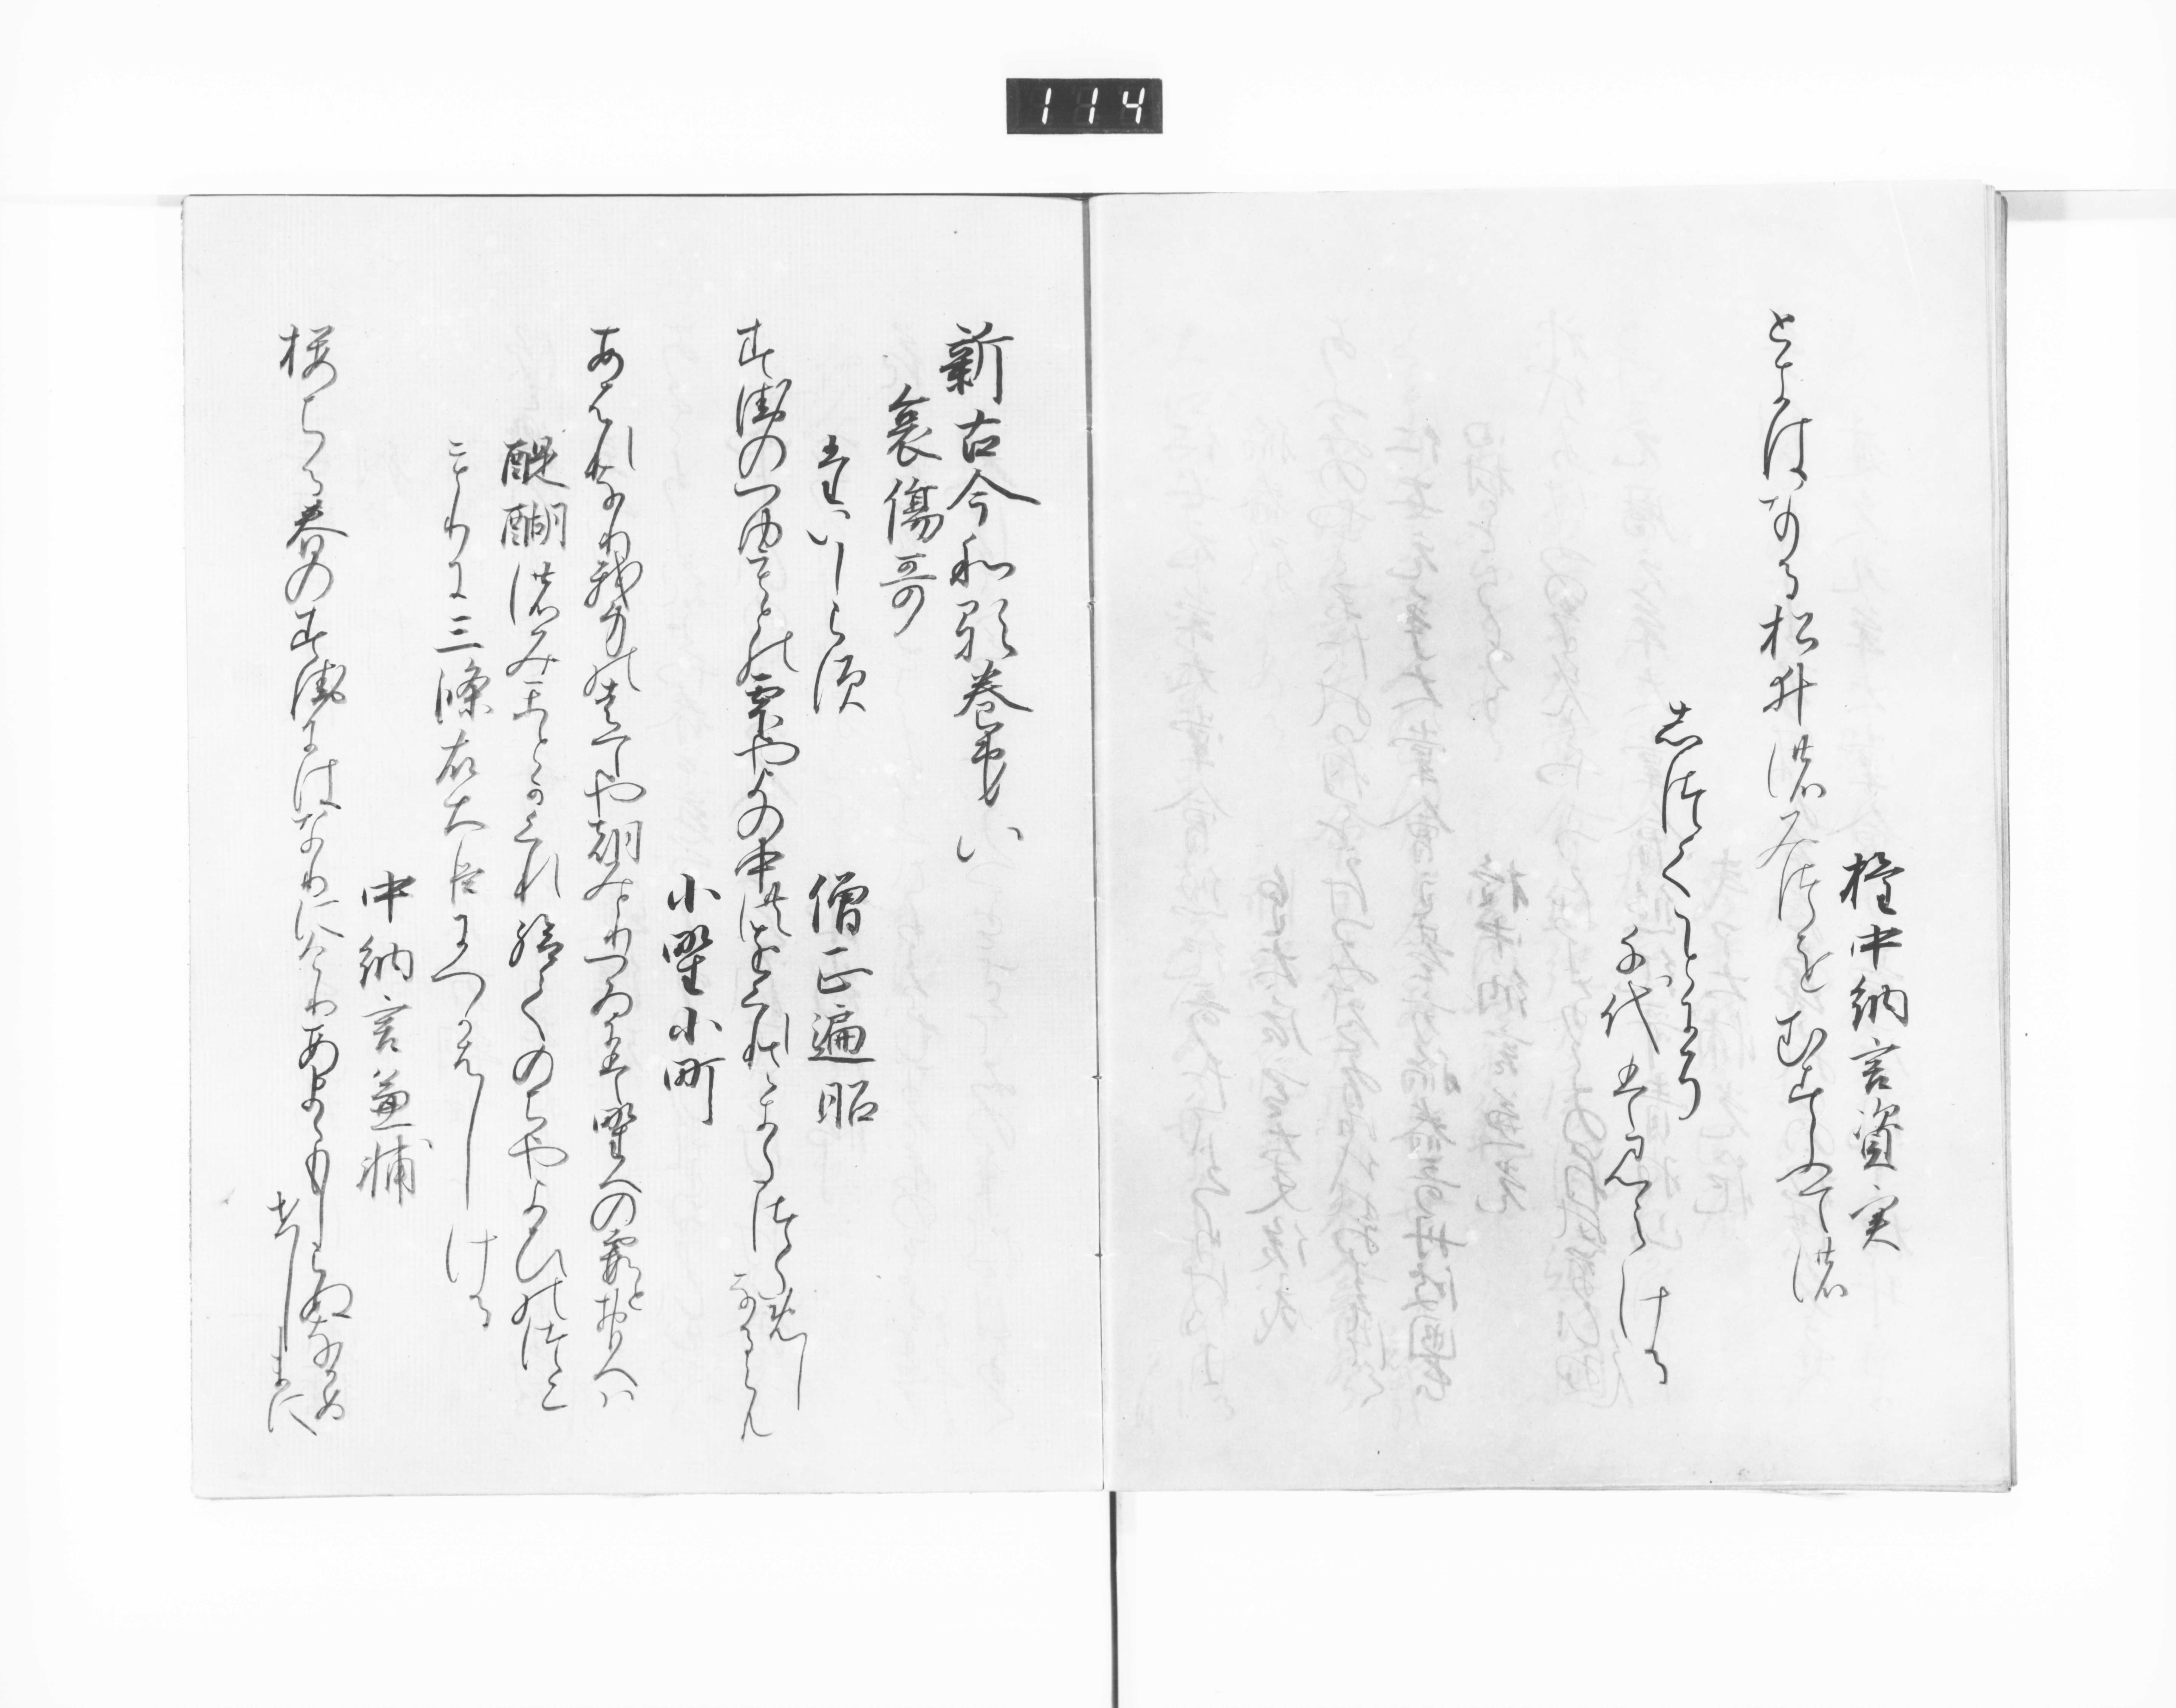 114
権中納言資実
ときはなる松井の水をむすふ手の
しつくことにそ
千代は見えける
新古今和哥巻第八
哀傷哥
たいしらす
僧正遍昭
すゑの露もとの雫や世中のをくれさきたつためし
なるらん
小野小町
あはれなりわか身のはてやあさみとりつゐには野へのかすみとおもへは
醍醐のみかとかくれ給てのちやよひのつこ
もりに三條右大臣につかはしける
中納言兼輔
桜ちる春のすゑにはなりにけりあまゝもしらぬなかめ
せしまに